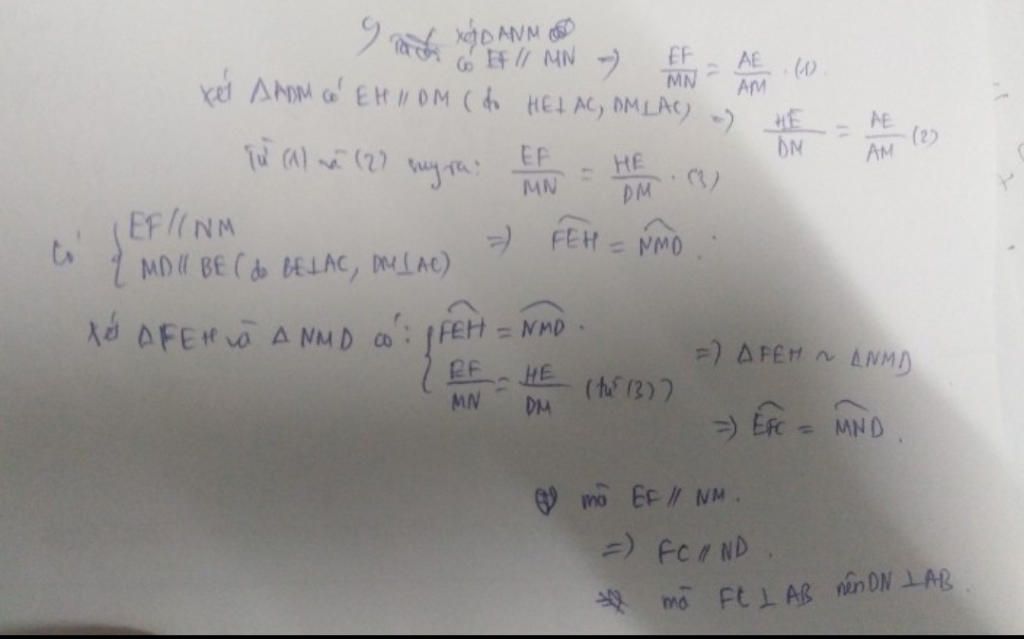 c) xét ΔANM
có EF // MN => EF/MN = AE/AM . (1)
xét ΔADM có EH // DM ( do HE⊥AC, DM⊥AC) => HE/DM = AE/AM (2)
Từ (1) và (2) suy ra: EF/MN = HE/DM . (3)
Có { EF // NM
MD // BE ( do BE⊥AC, DM⊥AC) => FEH = NMD .
xét ΔFEH và ΔNMD có: { FEH = NMD .
EF/MN = HE/DM (từ (3)) => ΔFEH ~ ΔNMD
=> EFC = MND .
mà EF // NM .
=> FC // ND .
mà FC ⊥ AB nên DN ⊥ AB .